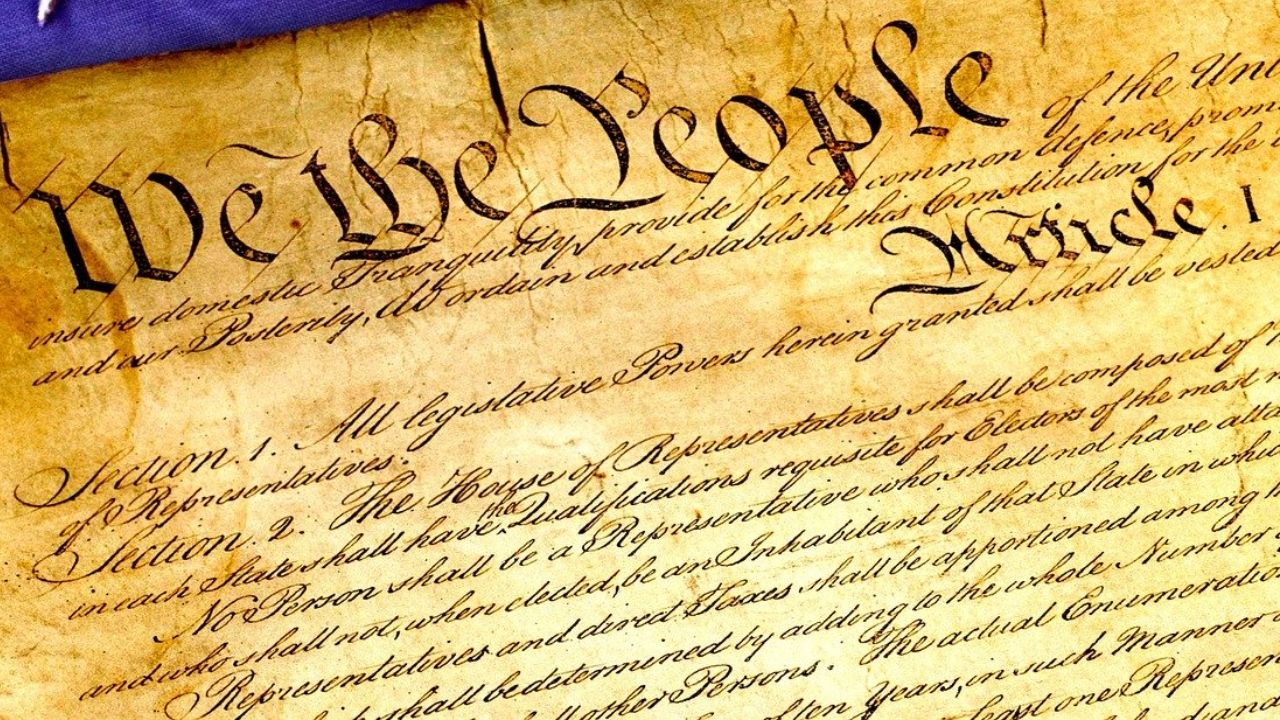 We the People of the Uni
insure domestic Tranquility, provide for the common defence, prom
and our Posterity, do ordain and establish this Constitution for the
Article I
Section. 1. All legislative Powers herein granted shall be vested
of Representatives.
Section. 2. The House of Representatives shall be composed of
in each State shall have the Qualifications requisite for Electors of the most
No Person shall be a Representative who shall not have atta
and who shall not, when elected, be an Inhabitant of that State in whic
Representatives and direct Taxes shall be apportioned among
shall be determined by adding to the whole Number
other Persons. The actual Enumeration
of ten Years, in such Manner
least one Represen